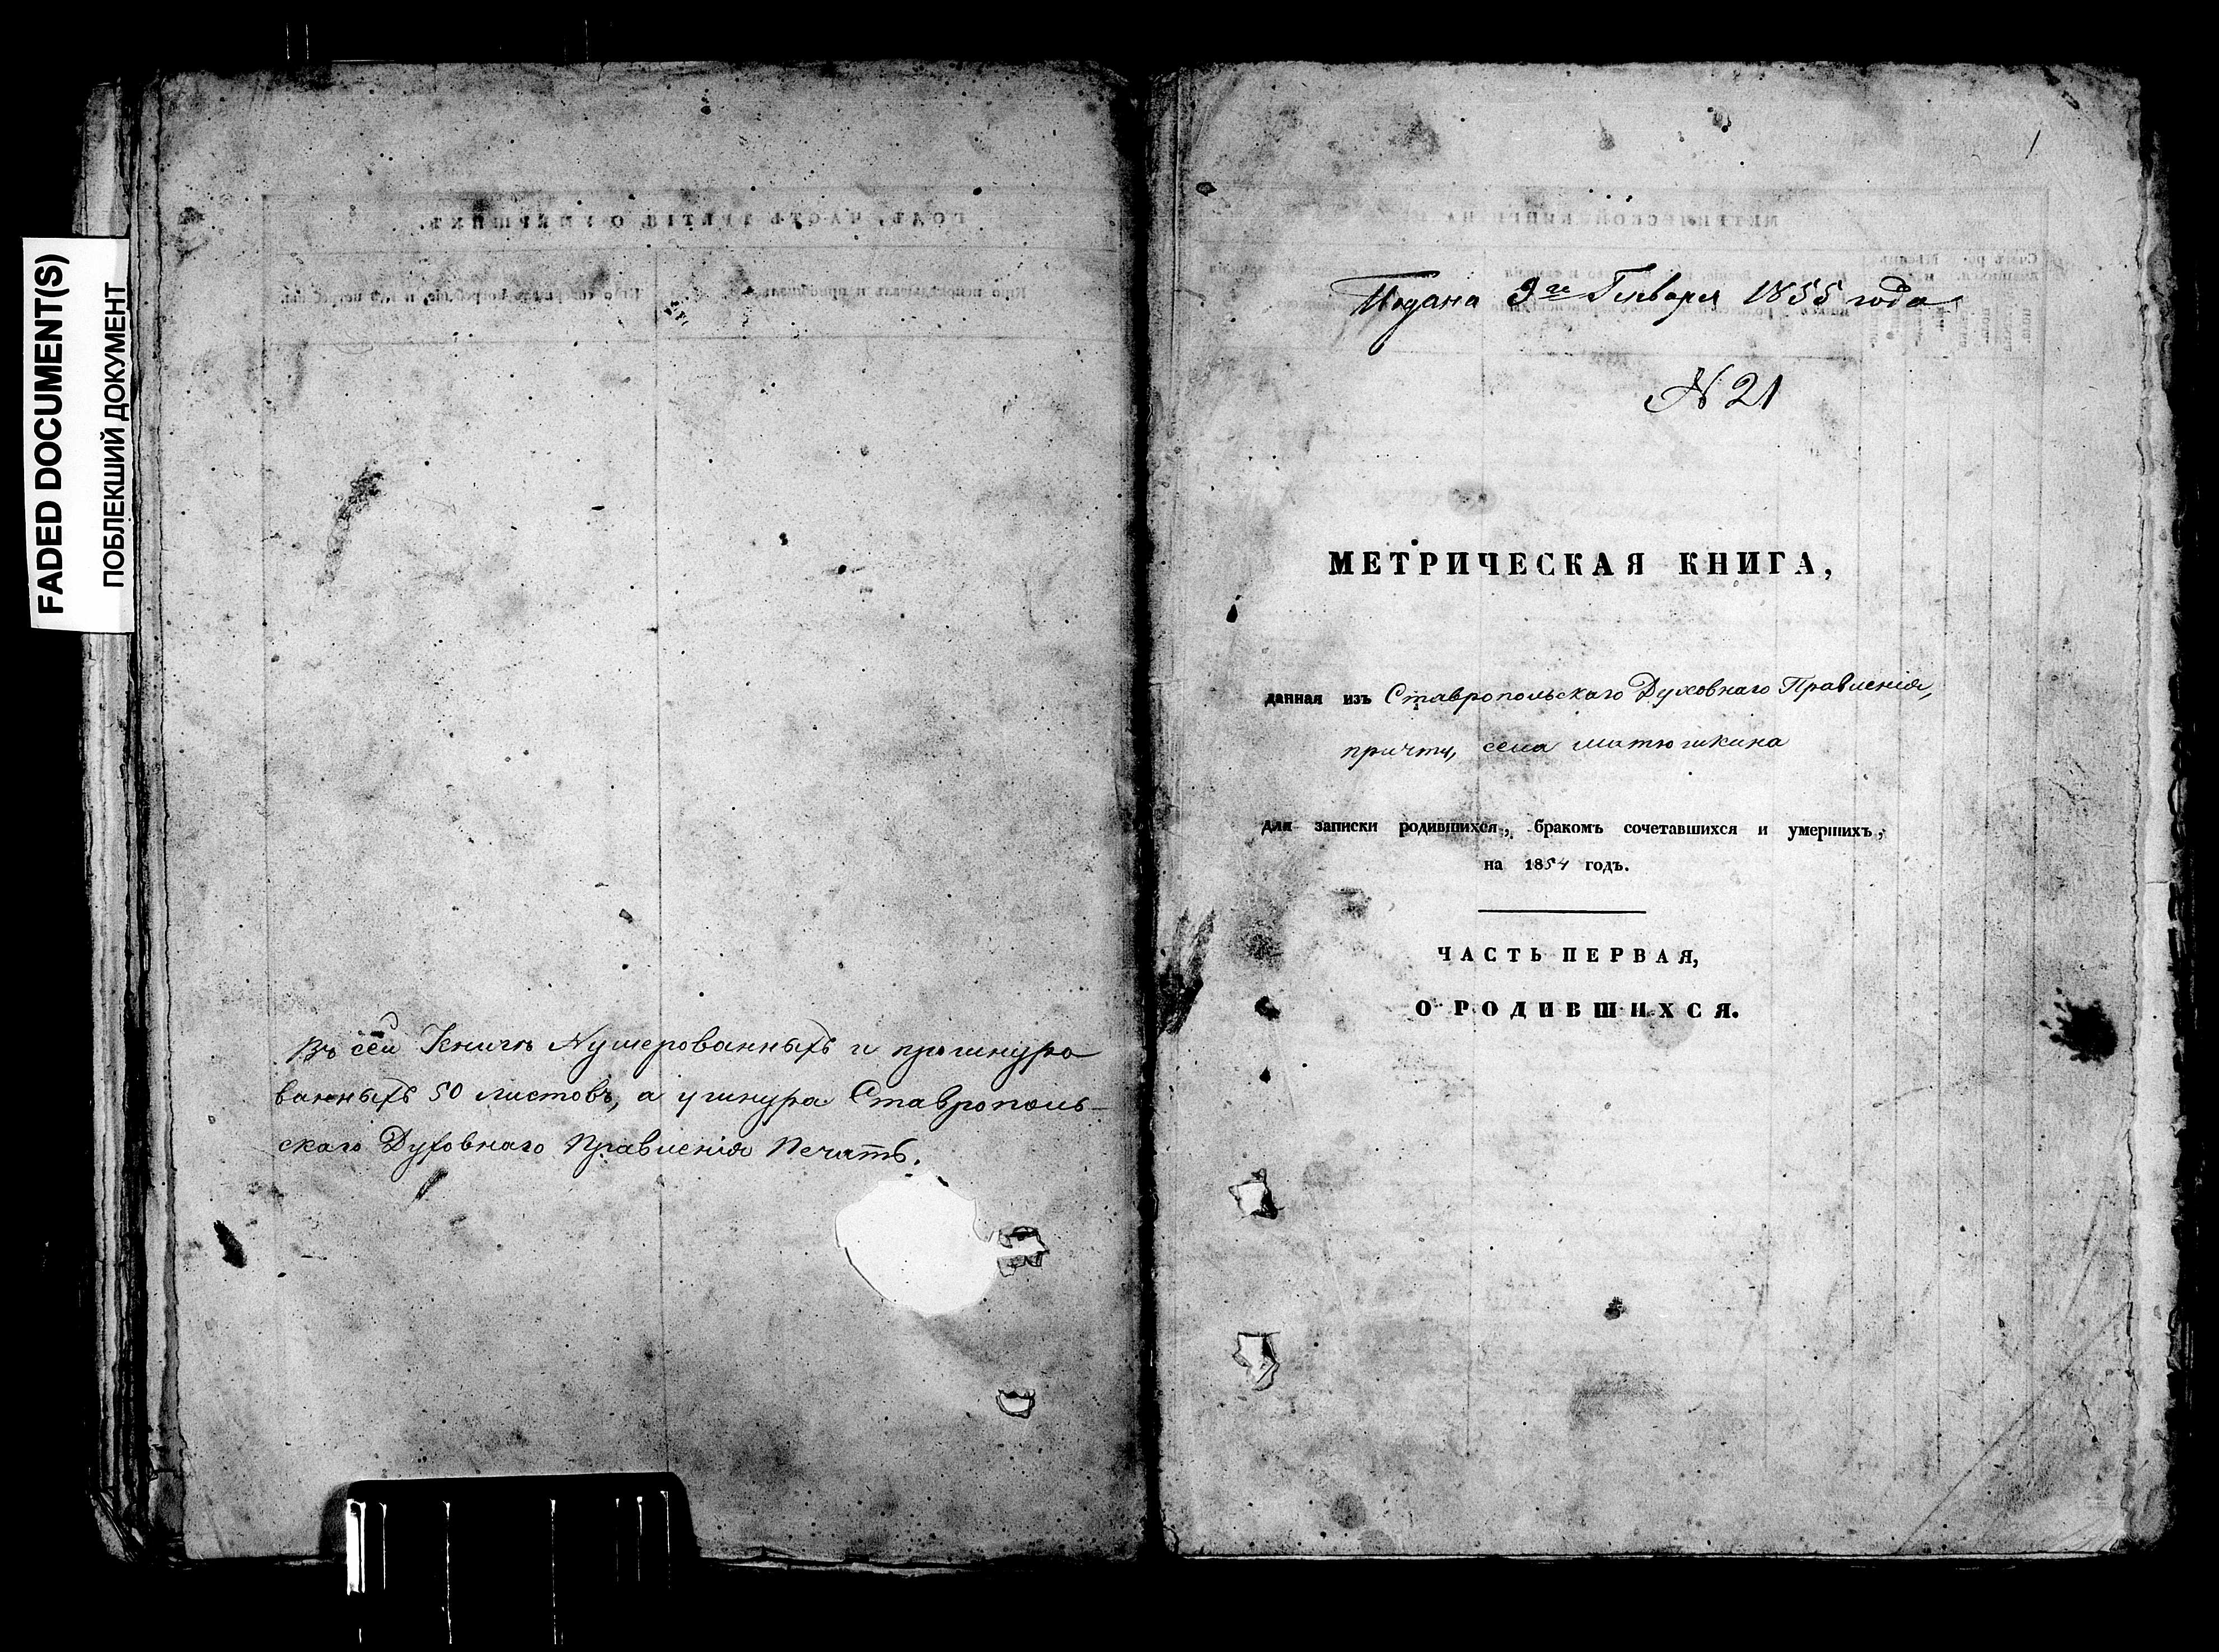 FADED DOCUMENT(S)
ПОБЛЕКШИЙ ДОКУМЕНТ
Въ сей Книгѣ Нумерованныхъ и прошнуро
ванныхъ 50 листовъ, а у шнура Ставрополь-
скаго Духовнаго Правленія Печать.
1
Подана 9го Генваря 1855 года
N 21
МЕТРИЧЕСКАЯ КНИГА,
данная изъ Ставропольскаго Духовнаго Правленія,
причту, села Матюшкина
для записки родившихся, бракомъ сочетавшихся и умершихъ,
на 1854 годъ.
ЧАСТЬ ПЕРВАЯ,
О РОДИВШИХСЯ.